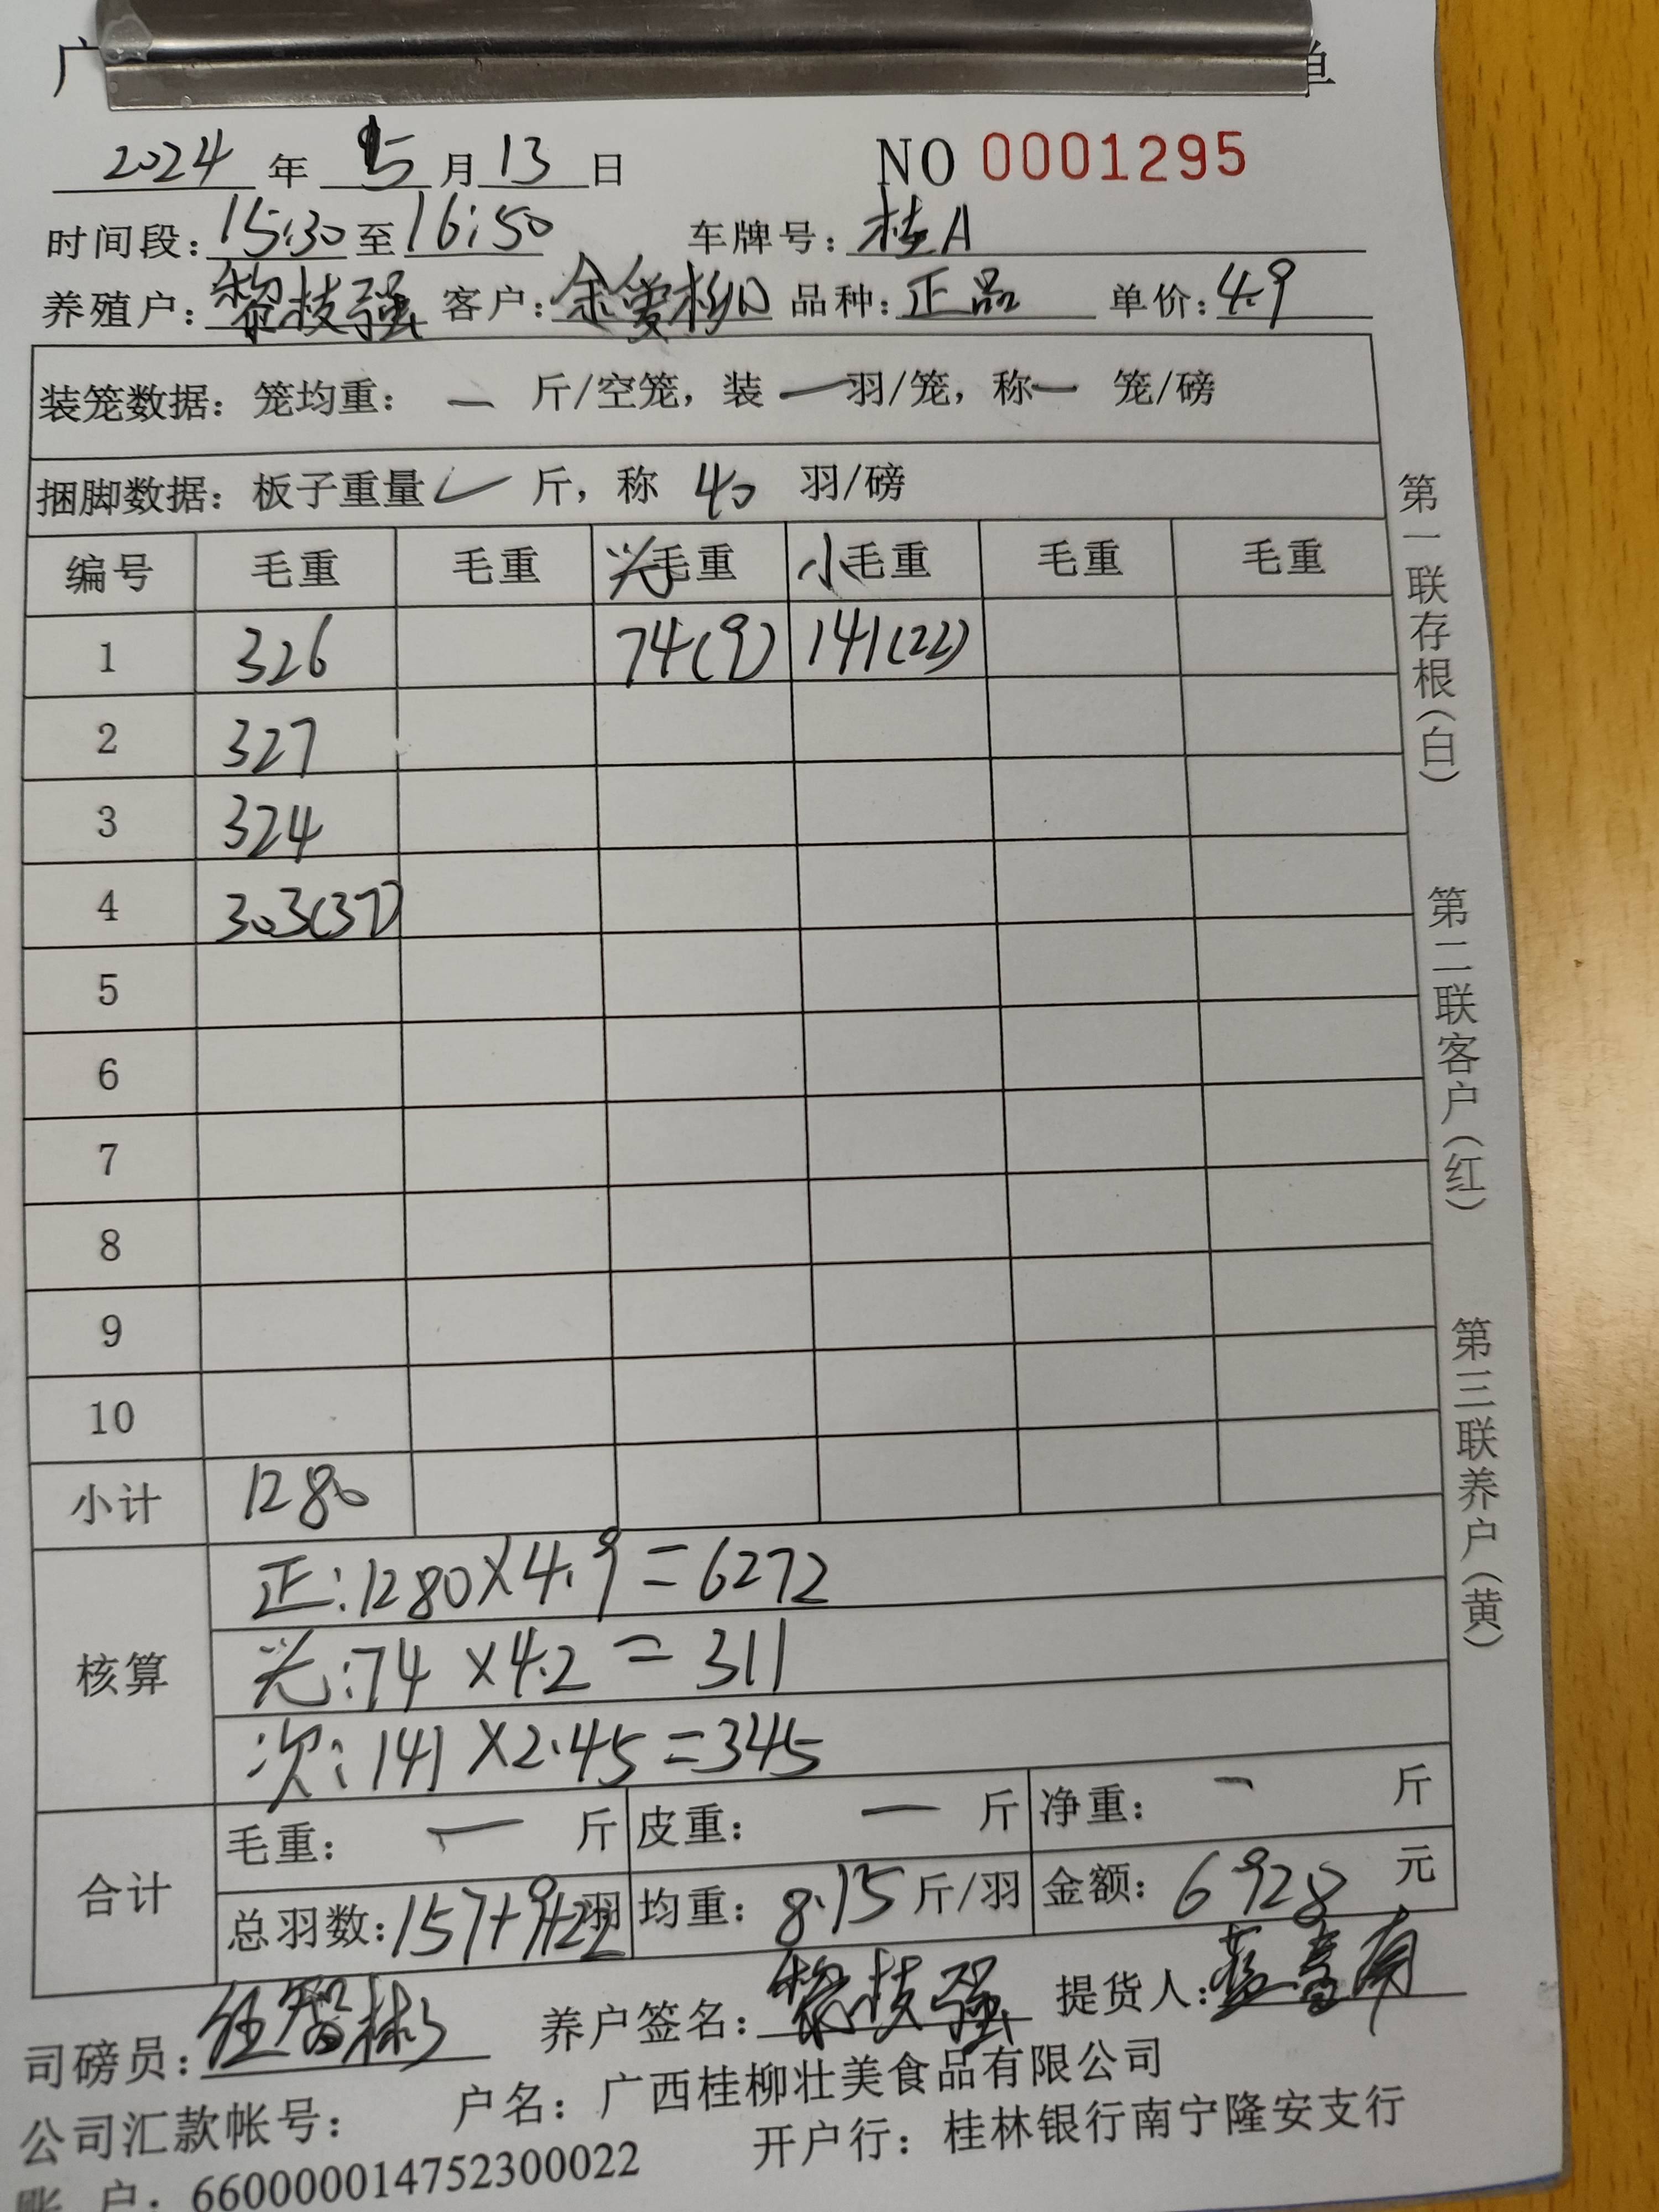 广 单
2024 年 5 月 13 日 NO 0001295
时间段: 15:30 至 16:50 车牌号: 桂A
养殖户: 黎枝强 客户: 余爱柳 品种: 正品 单价: 4.9
装笼数据: 笼均重: — 斤/空笼, 装 — 羽/笼, 称 — 笼/磅
捆脚数据: 板子重量 ✓ 斤, 称 40 羽/磅
编号 毛重 毛重 光毛重 小毛重 毛重 毛重
1 326 74(9) 141(22)
2 327
3 324
4 303(37)
5
6
7
8
9
10
小计 1280
核算 正:1280×4.9=6272
光:74×4.2=311
次:141×2.45=345
合计 毛重: — 斤 皮重: — 斤 净重: — 斤
总羽数: 157+9+22 羽 均重: 8.15 斤/羽 金额: 6928 元
司磅员: 任智彬 养户签名: 黎枝强 提货人:
公司汇款帐号: 户名: 广西桂柳壮美食品有限公司
账 户: 660000014752300022 开户行: 桂林银行南宁隆安支行
第一联存根(白)
第二联客户(红)
第三联养户(黄)